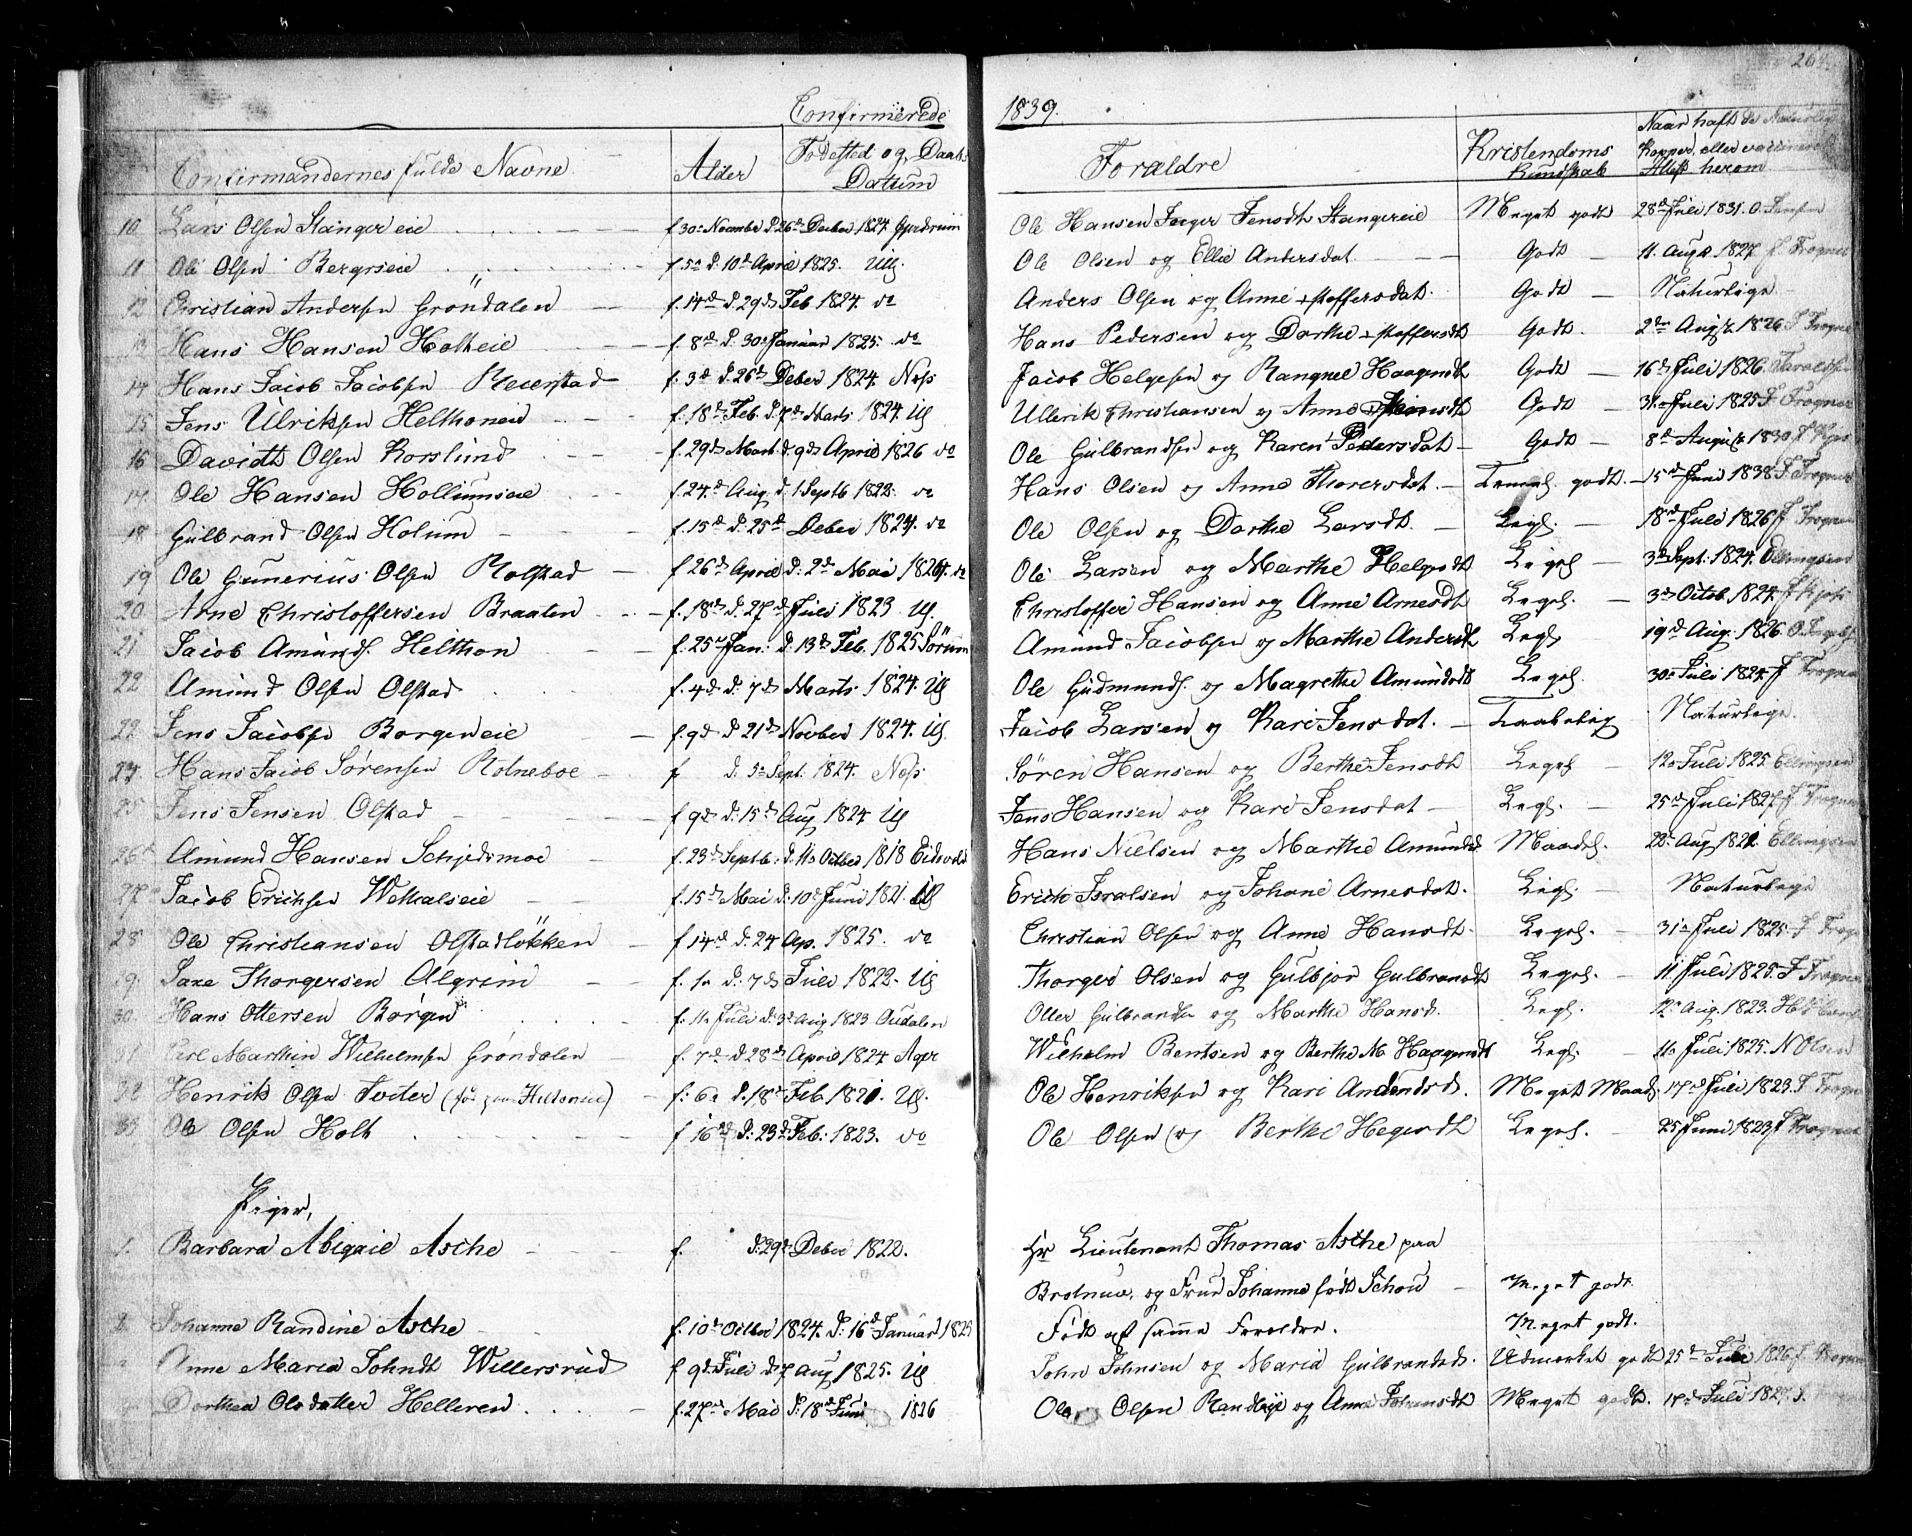 264
Confirmerede 1839.
Confirmandernes fulde Navne Alder Fødested og Daabs Datum Forældre Kristendoms Kundskab Naar haft de Naturlige Kopper, eller vaccinerede Attest herom
10 Lars Olsen Stangereie f. 30te Novembr D. 26d Decber 1824 Gjerdrum Ole Hansen Jensdt Stangereie Meget godt 28d Juli 1831. O. Jensen
11 Ole Olsen Bergseie f. 5te d. 10d April 1825. Ull. Ole Olsen og Ellie Andersdat Godt 11. Aug. 1827 J Trogner
12 Christian Andersen Grøndalen f. 14d d. 29d Feb 1824. do Anders Olsen og Anne +stoffersdat. Godt Naturlige
13 Hans Hansen Holteie f. 8d d. 30te Januar 1825. do Hans Pedersen og Dorthe +stoffersdt Godt. 2den Aug. 1826 J Trogner
14 Hans Jacob Jacobsen Reierstad f. 3d d. 26d Decber 1824. Næs Jacob Helgesen og Rangnel Haagensdt Godt 16d Juli 1826.
15 Jens Ulriksen Helthoneie f. 18d Feb. d. 7d Marts 1824. Ull Ullerik Christiansen og Anne Godt 31te Juli 1825 J Trogner
16 Davidt Olsen Korslund f. 29d Mart d. 9d April 1826 do Ole Gulbrandsen og Karen Pedersdat Godt 8d August 1830
17. Ole Hansen Hollumseie f. 24.d Aug. d. 1 Septb. 1822. do Hans Olsen og Anne Thoresdat. Temel. godt. 15d Juni 1838 J. Trogner
18 Gulbrand Olsen Holum f. 15d d. 25d Decber 1824. do Ole Olsen og Dorthe Larsdt. Legl. 18d Juli 1826 J Trogner
19 Ole Gunerius Olsen Rolstad f. 26d April d. 2d Mai 1824. do Ole Larsen og Marthe Helgesdt Legel. 3d Sept. 1824. Ellingsen
20 Arne Christoffersen Braaten f. 18d d. 27d Juli 1823 Ull. Christoffer Hansen og Anne Arnesdt Legel. 3d Octob. 1824.
21 Jacob Amunds. Helthon f. 25d Jan. d. 13d Feb. 1825 Sørum Amund Jacobsen og Marthe Andersdt Legl. 19d Aug. 1826.
22 Amund Olsen Olstad f. 4d d. 7d Marts 1824. Ull Ole Gudmunds. og Magrethe Amundsdt Legel. 30te Juli 1824. J Trogner
22. Jens Jacobsen Borgeneie f. 9d d. 21d Novber 1824. Ull Jacob Larsen og Kari Jensdat. Taaelelig Naturlige.
24 Hans Jacob Sørensen Rolneboe f. d. 5te Sept. 1824. Næs Søren Hansen og Berthe Jensdt Legel. 12te Juli 1825 Ellingsen
25 Jens Jensen Olstad f. 9d d. 15d Aug 1824 Ull Jens Hansen og Kari Jensdat Legl. 25d Juli 1827 J Trogner
26. Amund Hansen Schjedsmoe f. 23d Septb. d. 11te Octber 1818 Eidsvold Hans Nielsen og Marthe Amundsd. Maadel. 22 Aug 1821 Ellingsen
27. Jacob Erichsen Wekalseie f. 15d Mai d. 10d Juni 1821. Ull Erich Iversen og Johane Arnesdat. Legl. Naturlige
28. Ole Christiansen Olstadløkken f. 14d d. 24 Ap. 1825. do Christian Olsen og Anne Hansdt. Legel. 31te Juli 1825 J Trogner
29. Saxe Thorgersen Algrim f. 1te d. 7d Juli 1822. Ull Thorger Olsen og Gulbjør Gulbrandsdt Legel. 11 Juli 1825. J Trogner
30. Hans Ottersen Borgen f. 11te Juli d. 3d Aug 1823 Oudalen Otter Gulbrandsen og Marthe Hansd. Legl. 12te Aug. 1823.
31. Carl Marthin Wilhelmsen Grøndalen f. 7d d. 28d April 1824 Ager Wilhelm Bentsen og Berthe M. Haagensdt Legl. 11te Juli 1825. N Olsen
32 Henrik Olsen Sæter (før paa Heltoneie) f. 6te d. 18d Feb. 1821. Ull. Ole Henriksen og Kari Amundsd. Meget Maadl. 17d Juli 1823. J. Trogner
33 Ole Olsen Holt f. 16d d. 23d Feb. 1823. do Ole Olsen og Berthe Hegersdt Legel. 25 Juni 1823 J Trogner
Piger,
1. Barbara Abigael Asche f. d. 29d Decbr 1822. Hr Lieutenant Thomas Asche paa
Brotnu, og Frue Johanne født Schou Meget godt.
2. Johanne Randine Asche f. 10d Octbr 1824. d. 16d Januar 1825 Født af samme Forældre. Meget godt.
Anne Maria Johnsdt Willersrud f. 9d Juli d. 7 Aug 1825. Ull John Johnsen og Maria Gulbrandsd. Udmærket godt 25d Juli 1826 J. Trogner
Dorthea Olsdatter Helleren. f. 27d Mai d. 18d Juni 1826 Ole Olsen Randleie og Anne Johansdt Meget godt. 17d Juli 1827.